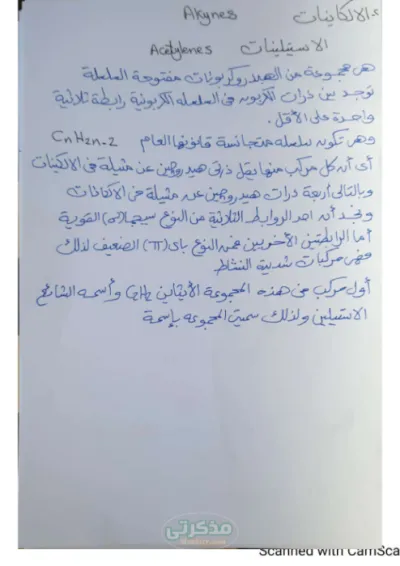 ٤-الالكاينات Akynes
الاستيلينات Acetylenes
هى مجموعة من الهيدروكربونات مفتوحة السلسلة
توجد بين ذرات الكربون فى السلسله الكربونية رابطة ثلاثية
واحدة على الأقل.
وهى تكون سلسله متجانسة قانونها العام CnH2n-2
أى أن كل مركب منها يقل ذرتى هيدروجين عن مثيلة فى الالكينات
وبالتالى أربعة ذرات هيدروجين عن مثيلة من الالكانات
ونجد أن احد الروابط الثلاثية من النوع سيجما (σ) القوية
أما الرابطتين الأخريين فمن النوع باى (π) الضعيف لذلك
فهى مركبات شديدة النشاط
أول مركب من هذه المجموعة الأيثاين C2H2 وأسمه الشائع
الاستيلين ولذلك سميت المجموعه بإسمة
مذكرتى
Scanned with CamSca